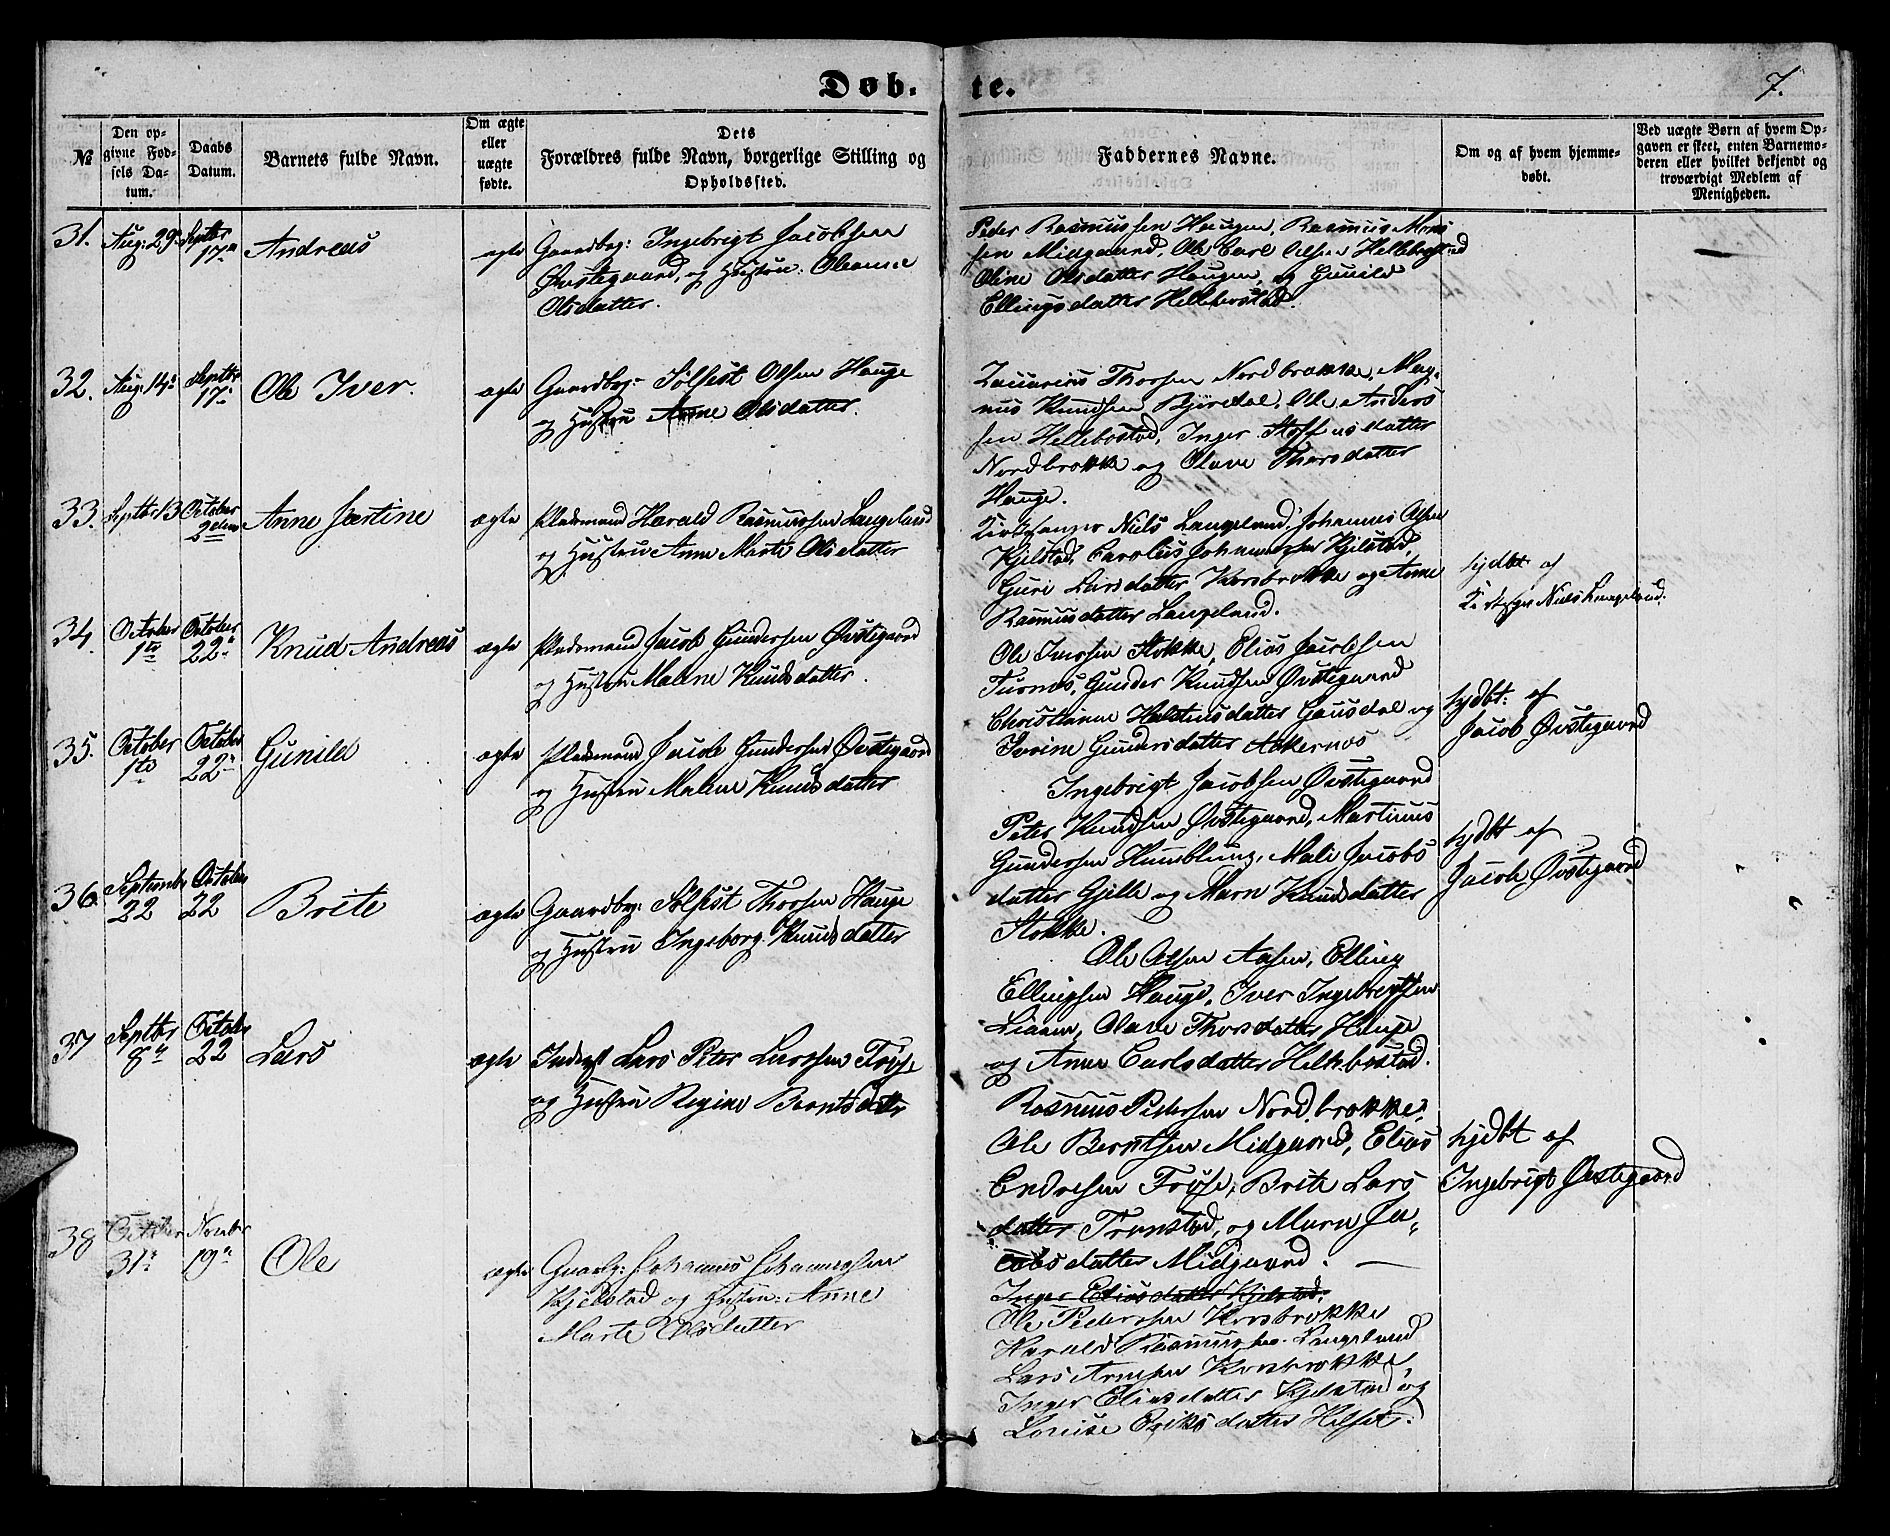 Døb-
te.
7.
№
Den op-
givne Fød-
sels Da-
tum.
Daabs
Datum.
Barnets fulde Navn.
Om ægte
eller
uægte
fødte.
Dets
Forældres fulde Navn, borgerlige Stilling og
Opholdssted.
Faddernes Navne.
Om og af hvem hjemme-
døbt.
Ved uægte Børn af hvem Op-
gaven er skeet, enten Barnemo-
deren eller hvilket bekjendt og
troværdigt Medlem af
Menigheden.
31.
Aug: 29
Septbr
17
Andreas
ægte
Gaardbrg: Ingebrigt Jacobsen
Øvstegaard, og Hustru: Oleanne
Olsdatter.
Peder Rasmussen Haugen, Rasmus Mons
sen Midgaard, Ole Carl Olsen Hellebostad
Oline Olsdatter Haugen, og Gunild
Ellingsdatter Hellebostad.
32.
Aug: 14
Septbr
17
Ole Iver.
ægte
Gaardbrg: Sølfest Olsen Hauge
og Hustru Anne Olsdatter.
Zacarias Thorsen Nordbrokke, Mag-
nus Knudsen Bjørdal, Ole Anders
sen Hellebostad, Inger Stoffersdatter
Nordbrokke og Olave Thorsdatter
Hauge.
33.
Septbr 13
October
2den
Anne Jertine
ægte
Pladsmand Harald Rasmussen Langeland
og Hustru Anne Marte Olsdatter
Kirkesanger Niels Langeland, Johannes Olsen
Kjelstad, Carolus Johannessen Kjelstad,
Guri Larsdatter Korsbrokke og Anne
Rasmusdatter Langeland.
hjdbt af
Kirkesger Niels Langeland.
34.
October
1te
October
22
Knud Andreas
ægte
Pladsmand Jacob Gundersen Øvstegaard
og Hustru Malene Knudsdatter.
Ole Iversen Stokke, Elias Jacobsen
Turnes, Gunder Knudsen Øvstegaard
Christianne Halstensdatter Gausdal og
Iverine Gundersdatter Aakernes
hjdbt: af
Jacob Øvstegaard
35.
October
1te
October
22
Gunild
ægte
Pladsmand Jacob Gundersen Øvstegaard
og Hustru Malene Knudsdatter
Ingebrigt Jacobsen Øvstegaard
Peter Knudsen Øvstegaard, Martinus
Gundersen Humblung, Mali Jacobs
datter Gjelle og Marn Knudsdatter
Stokke.
hjdbt af
Jacob Øvstegaard
36
Septembr
22
October
22
Brite
ægte
Gaardbrg: Sølfest Thorsen Hauge
og Hustru Ingeborg Knudsdatter
Ole Olsen Aasen, Elling
Ellingsen Hauge, Iver Ingebrigtsen
Liaren, Olave Thorsdatter Hauge
og Anne Carlsdatter Hellebostad.
37
Septbr
8
October
22
Lars
ægte
Inderst Lars Peter Larssen Frøj-
og Hustru Regine Berntsdatter
Rasmus Pedersen Nordbrokke,
Ole Berntsen Midgaard, Elias
Endresen Frøse, Brite Lars
datter Tronstad, og Marn Ja-
cobsdatter Midgaard.
hjdbt af
Ingebrigt Øvstegaard
38
October
31
Novbr
19
Ole
ægte
Gaardbrg: Johannes Johannessen
Kjelstad og Hustru: Anne
Marte Olsdatter
Inger Eliasdatter Kjelstad,
Ole Pedersen Korsbrokke
Harald Rasmussen Langeland
Lars Arnesen Korsbrokke,
Inger Eliasdatter Kjelstad, og
Louise Eriksdatter Helset.